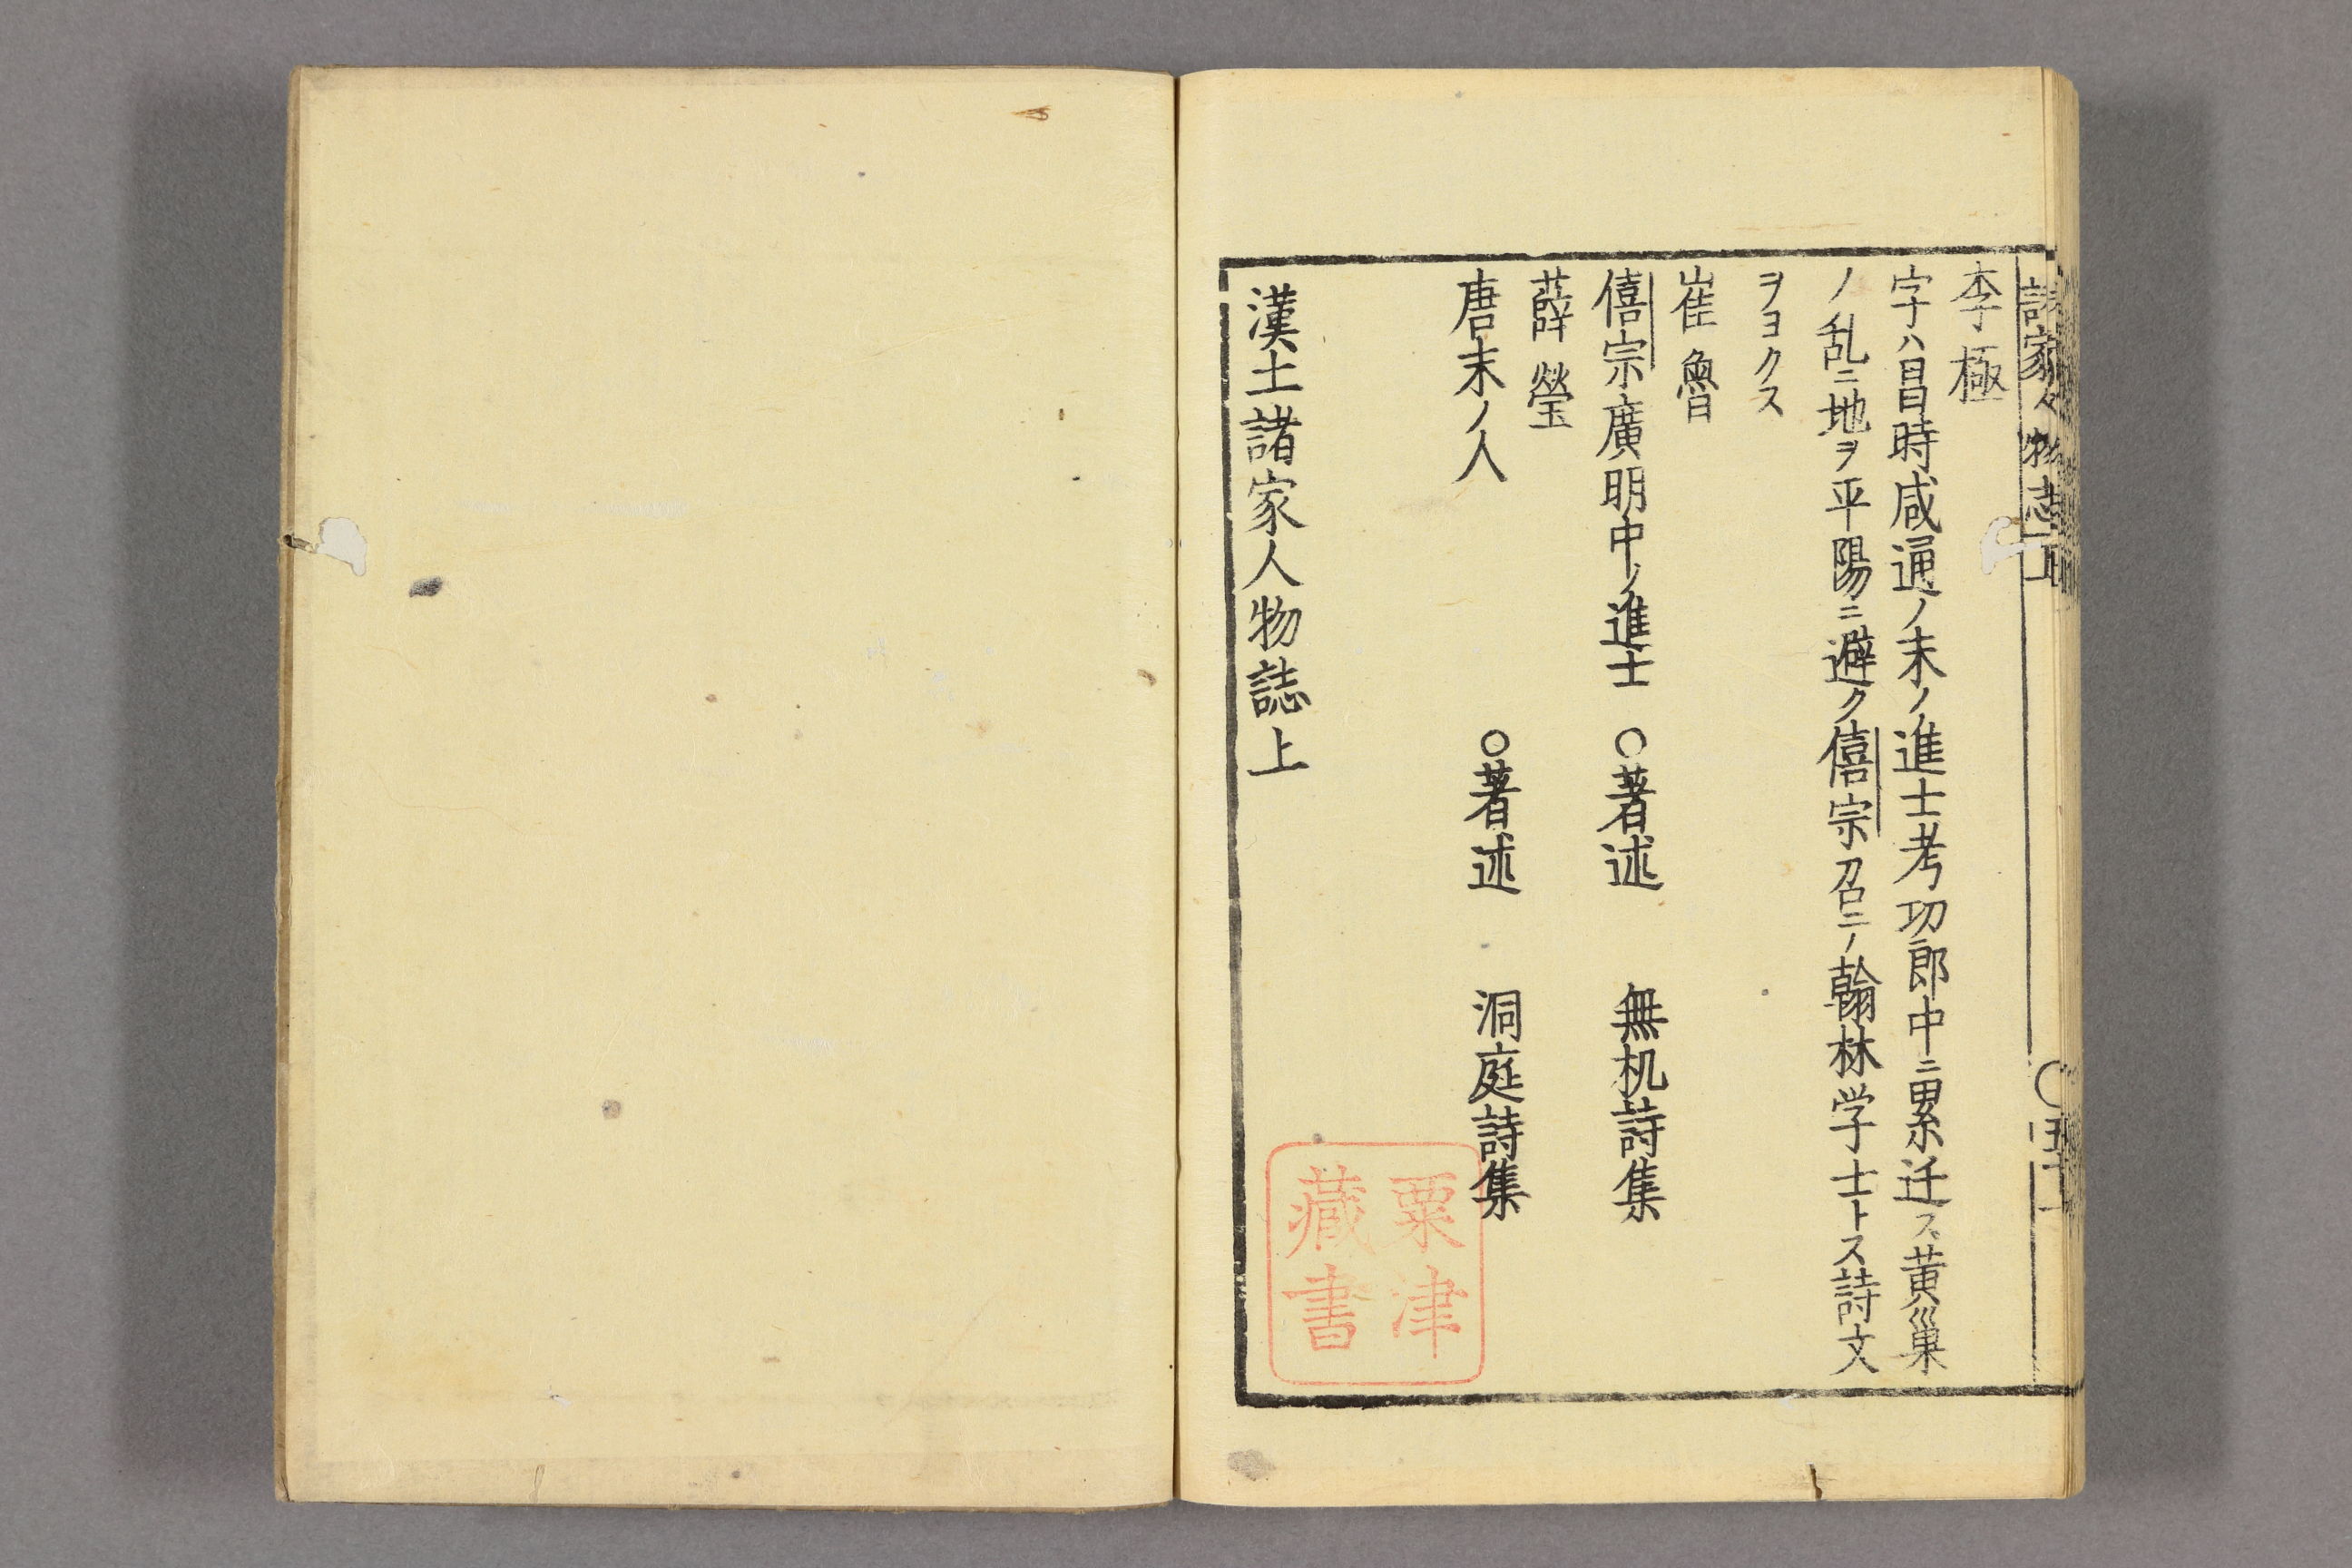 李極
字ハ昌時咸通ノ末ノ進士考功郎中ニ累迁ス黄巢
ノ乱ニ地ヲ平陽ニ避ク僖宗召ニノ翰林学士トス詩文
ヲヨクス
崔魯
僖宗廣明中ノ進士 ○著述 無机詩集
薛瑩
唐末ノ人 ○著述 洞庭詩集
漢土諸家人物誌上
粟津
藏書